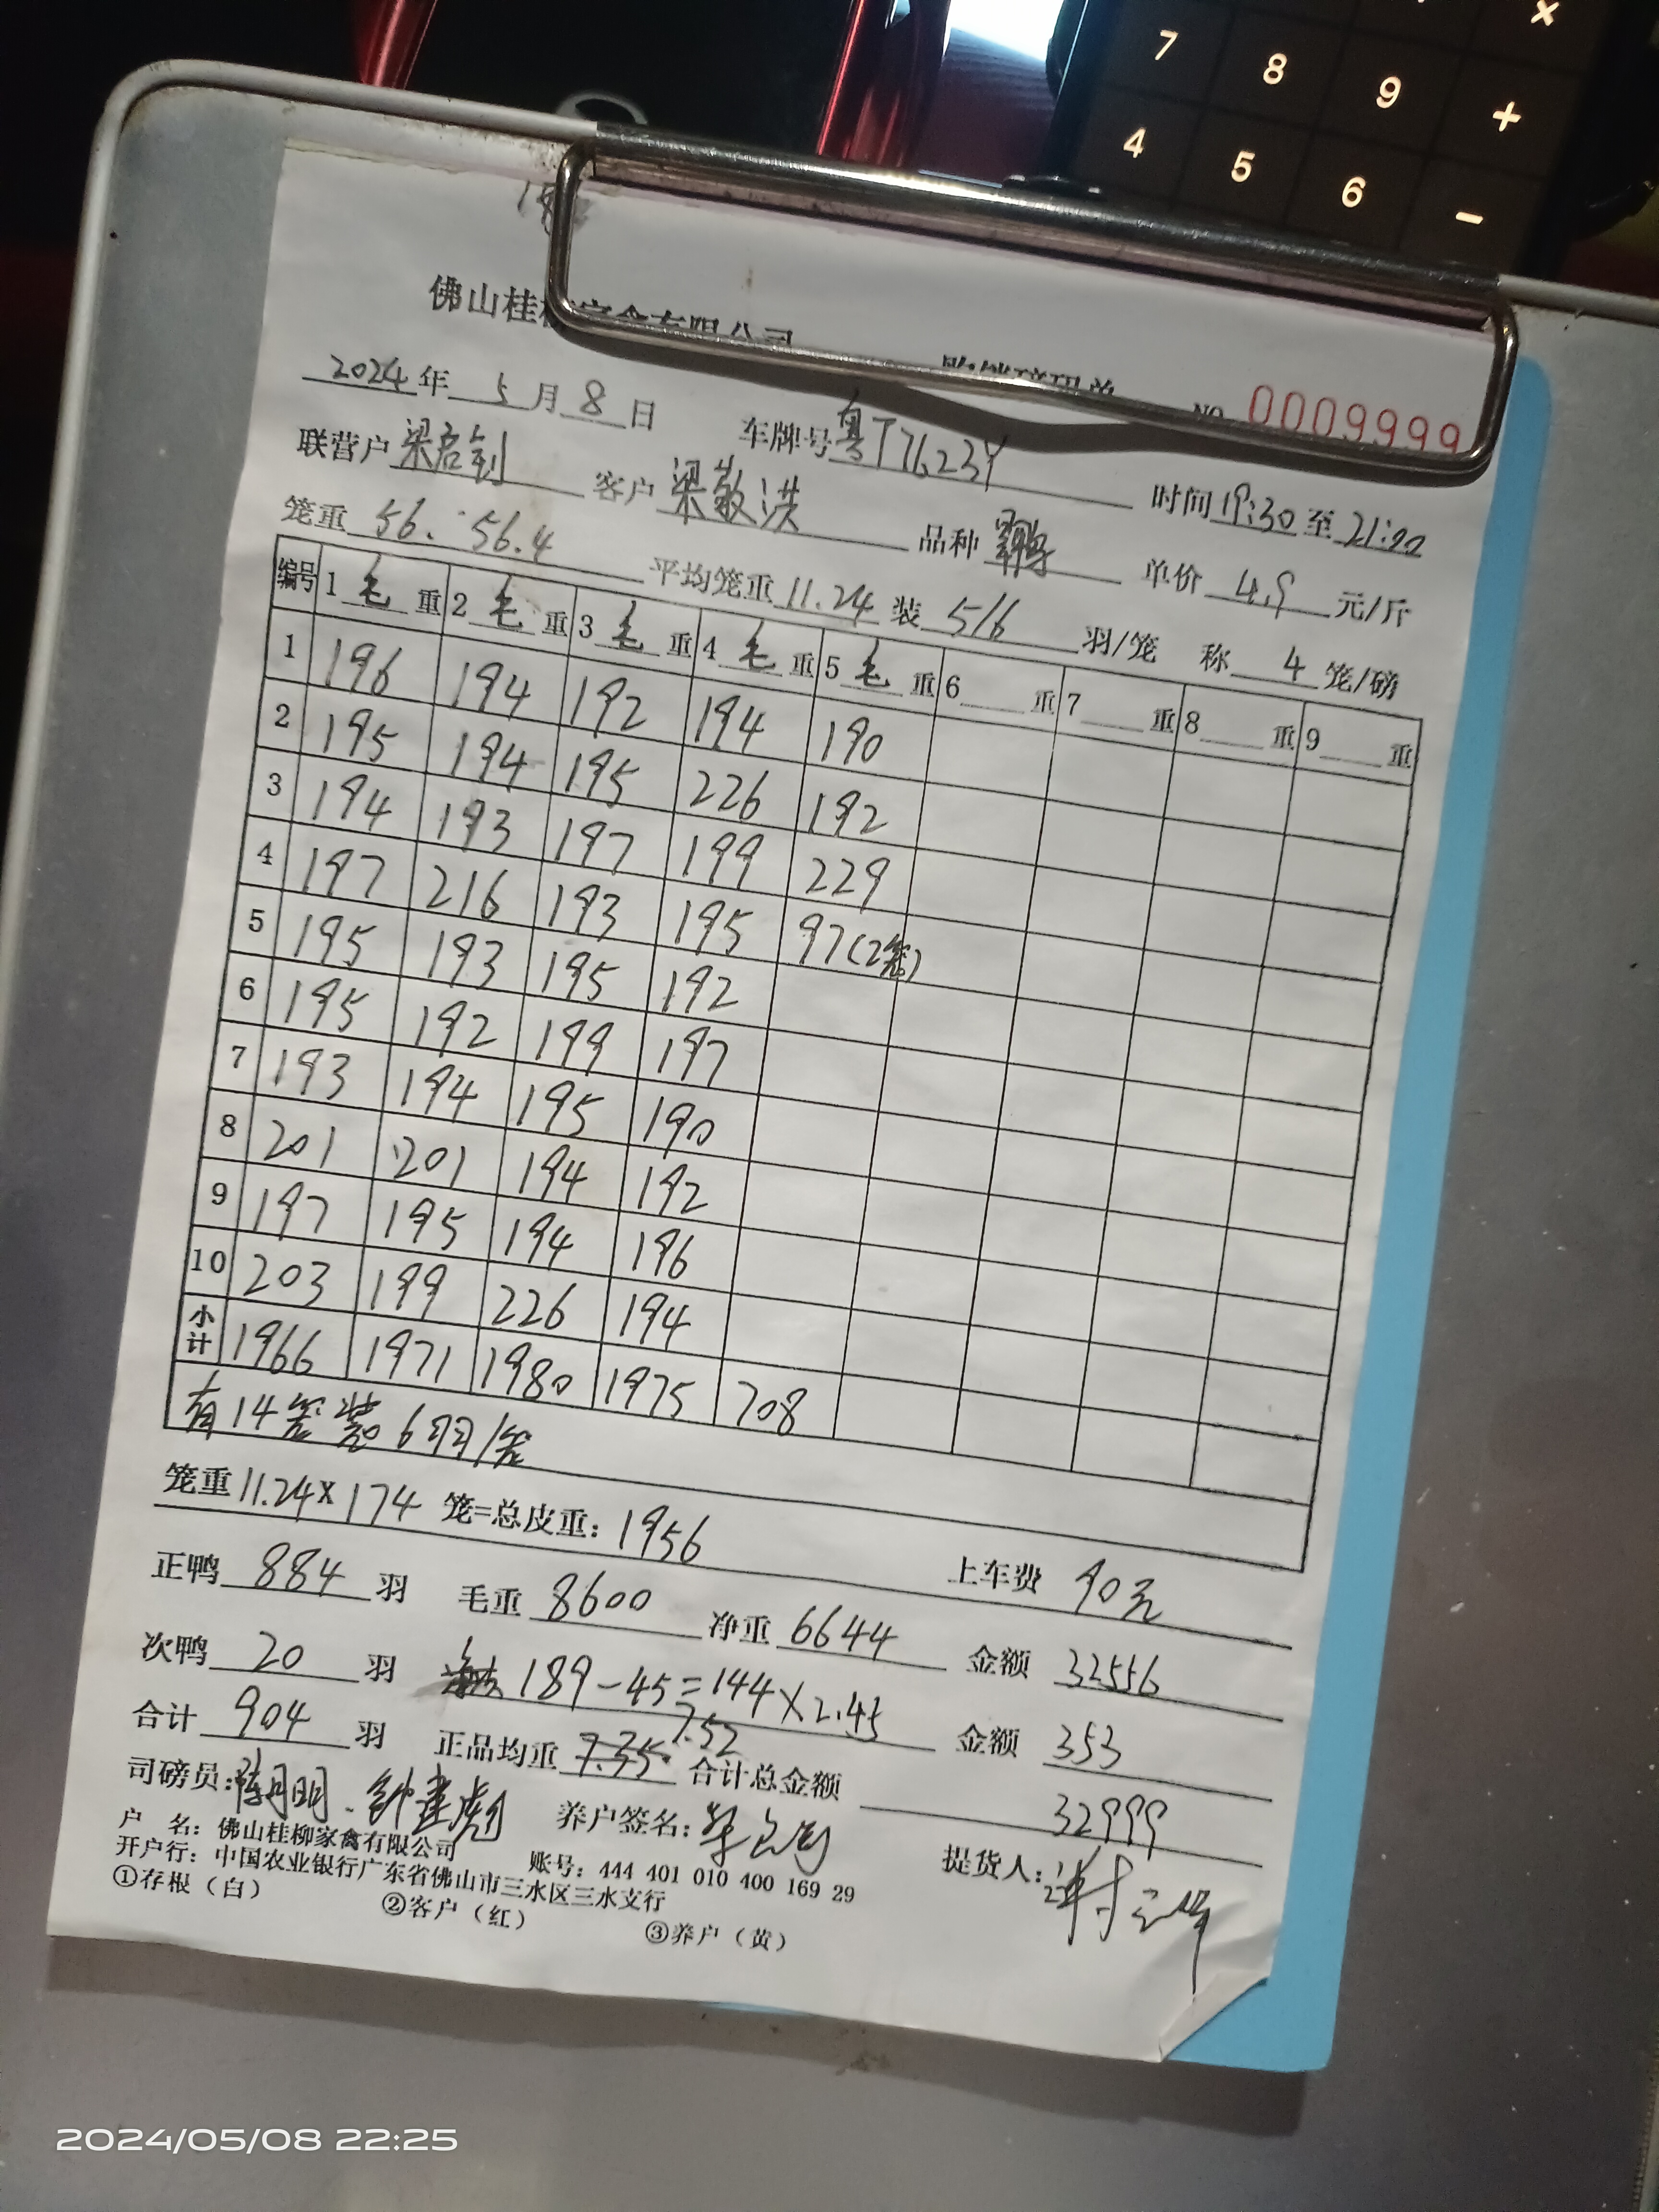 × 7 8 9 + 4 5 6 −
佛山桂
NO 0009999
2024年 5月8日 车牌号粤T7623Y 时间19:30至21:00
联营户 梁启钊 客户 梁敬洪 品种 单价 4.9 元/斤
笼重 56. 56.4 平均笼重 11.24 装 5/6 羽/笼 称 4 笼/磅
编号 1毛重 2毛重 3毛重 4毛重 5毛重 6 重 7 重 8 重 9 重
1 196 194 192 194 190
2 195 194 195 226 192
3 194 193 197 199 229
4 197 216 193 195 97(2笼)
5 195 193 195 192
6 195 192 199 197
7 193 194 195 190
8 201 201 194 192
9 197 195 194 196
10 203 199 226 194
小计 1966 1971 1980 1975 708
有14笼装6羽/笼
笼重11.24×174 笼=总皮重:1956 上车费 90元
正鸭 884 羽 毛重 8600 净重 6644 金额 32556
次鸭 20 羽 189-45=144×2.45 金额 353
合计 904 羽 正品均重 7.35 7.52 合计总金额 32999
司磅员:陈月明、钟建彪 养户签名: 提货人:
户 名:佛山桂柳家禽有限公司 账号:444 401 010 400 169 29
开户行:中国农业银行广东省佛山市三水区三水支行
①存根(白) ②客户(红) ③养户(黄)
2024/05/08 22:25